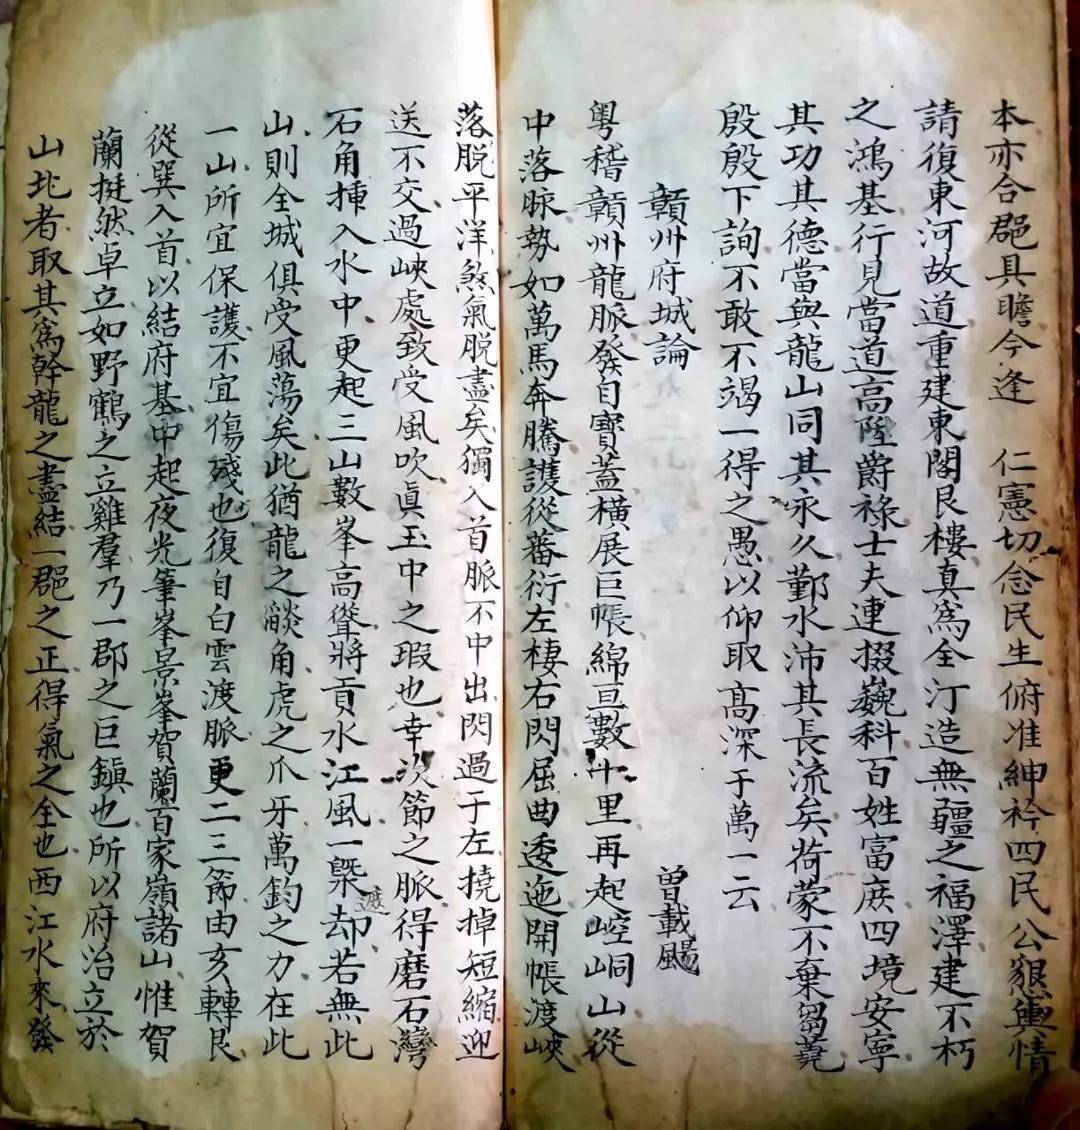 本亦合郡具瞻今逢　仁憲切念民生俯准紳衿四民公懇輿情
請復東河故道重建東閣艮樓真爲全汀造無疆之福澤建不朽
之鴻基行見當道高陞爵祿士夫連掇巍科百姓富庶四境安寧
其功其德當與龍山同其永久鄞水沛其長流矣荷蒙不棄芻蕘
殷殷下詢不敢不竭一得之愚以仰取高深于萬一云
贛州府城論
曾載颺
粵稽贛州龍脈發自寶蓋橫展巨帳綿亘數十里再起崆峒山從
中落脉勢如萬馬奔騰護從蕃衍左棲右閃屈曲逶迤開帳渡峽
落脱平洋煞氣脱盡矣獨入首脈不中出閃過于左撓掉短縮迎
送不交過峽處致受風吹眞玉中之瑕也幸次節之脈得磨石灣
石角揷入水中更起三山數峯高聳將貢水江風一槩遮却若無此
山則全城俱受風蕩矣此猶龍之頷角虎之爪牙萬鈞之力在此
一山所宜保護不宜傷殘也復自白雲渡脈更二三節由亥轉艮
從巽入首以結府基中起夜光筆峯景峯賀蘭百家嶺諸山惟賀
蘭挺然卓立如野鶴之立雞羣乃一郡之巨鎮也所以府治立於
山北者取其爲幹龍之盡結一郡之正得氣之全也西江水來發